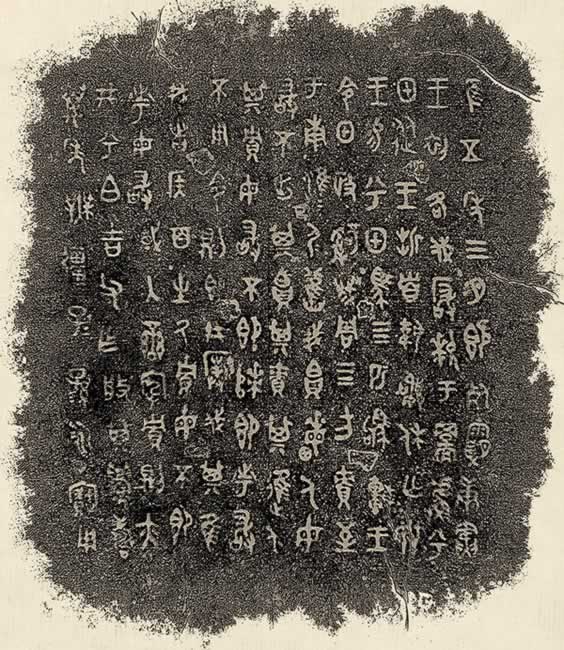 隹五年三月既死霸庚寅
王初各伐玁狁于䣙𧇽兮
甲從王折首執訊休亡敃
王易兮甲馬四匹駒車王
令甲政𤔲成周四方責至
于南淮尸淮尸舊我員畮人毋
敢不出其員其責其進人
其貯毋敢不即次即市敢
不用令則即井撲伐其隹
我者侯百生氒貯毋不即
市毋敢或入䜌宄貯則亦
井兮白吉父乍般其眉壽
萬年無疆子子孫孫永寶用